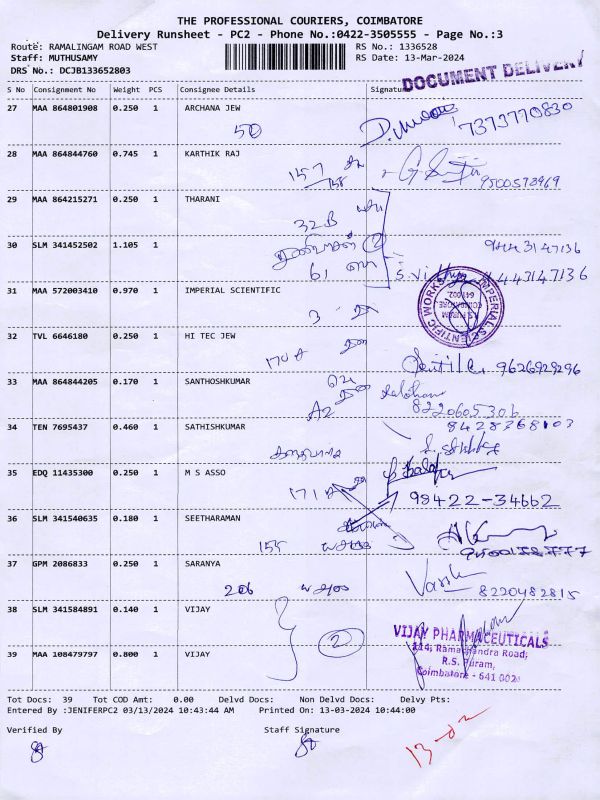 THE PROFESSIONAL COURIERS, COIMBATORE
Delivery Runsheet - PC2 - Phone No.:0422-3505555 - Page No.:3
Route: RAMALINGAM ROAD WEST RS No.: 1336528
Staff: MUTHUSAMY RS Date: 13-Mar-2024
DRS No.: DCJB133652803
DOCUMENT DELIVERY
S No Consignment No Weight PCS Consignee Details Signature
27 MAA 864801908 0.250 1 ARCHANA JEW
50 7373770830
28 MAA 864844760 0.745 1 KARTHIK RAJ
157
158 9500573969
29 MAA 864215271 0.250 1 THARANI
32B
30 SLM 341452502 1.105 1 9443147136
2
61 9443147136
31 MAA 572003410 0.970 1 IMPERIAL SCIENTIFIC
3
IMPERIAL SCIENTIFIC WORKS
R.S PURAM
COIMBATORE
641 002.
32 TVL 6646180 0.250 1 HI TEC JEW
170A 9626929296
33 MAA 864844205 0.170 1 SANTHOSHKUMAR
A2 8220605306
34 TEN 7695437 0.460 1 SATHISHKUMAR 8428368103
35 EDQ 11435300 0.250 1 M S ASSO
171 98422-34662
36 SLM 341540635 0.180 1 SEETHARAMAN
155
37 GPM 2086833 0.250 1 SARANYA
206 8220482815
38 SLM 341584891 0.140 1 VIJAY
2
VIJAY PHARMACEUTICALS
114, Ramachandra Road,
R.S. Puram,
Coimbatore - 641 002
39 MAA 108479797 0.800 1 VIJAY
Tot Docs: 39 Tot COD Amt: 0.00 Delvd Docs: Non Delvd Docs: Delvy Pts:
Entered By :JENIFERPC2 03/13/2024 10:43:44 AM Printed On: 13-03-2024 10:44:00
Verified By Staff Signature